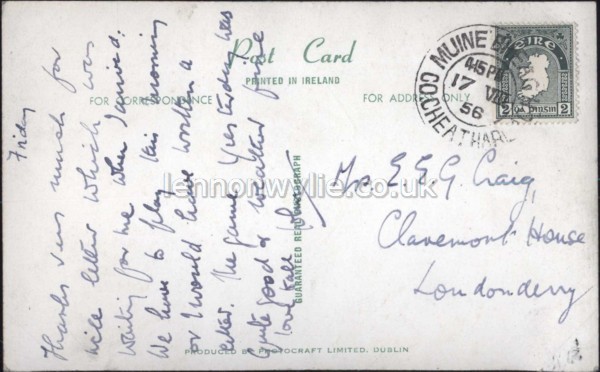 Post Card
PRINTED IN IRELAND
FOR CORRESPONDENCE
FOR ADDRESS ONLY
MUINE
4.45 PM
17 VIII
56
CO. CHEATHAR
éire
2 2
Friday
Thanks very much for
nice letter which was
waiting for me when I arrived.
We have to play this morning
or I would have written a
letter. The game yesterday was
quite good & weather fine
love to all
E. G. Craig,
Claremont House
Londonderry
GUARANTEED REAL PHOTOGRAPH
PRODUCED BY PHOTOCRAFT LIMITED, DUBLIN
lennonwylie.co.uk